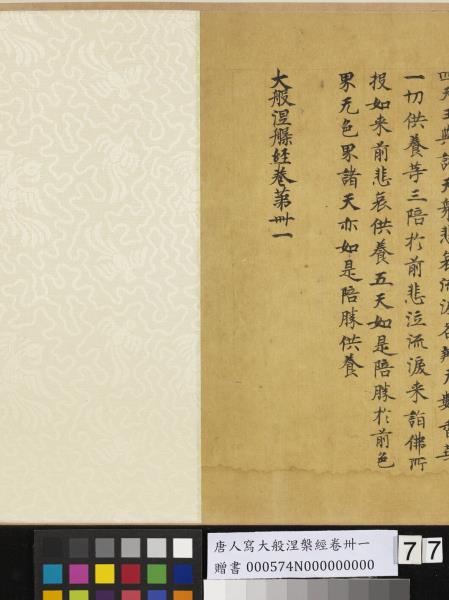 四天王與諸天眾悲哀流淚各辦天數香華
一切供養等三陪於前悲泣流淚来詣佛所
投如来前悲哀供養五天如是陪勝於前色
界无色界諸天亦如是陪勝供養
大般涅槃經卷第卌一
唐人寫大般涅槃經卷卌一
贈書 000574N000000000
7 7